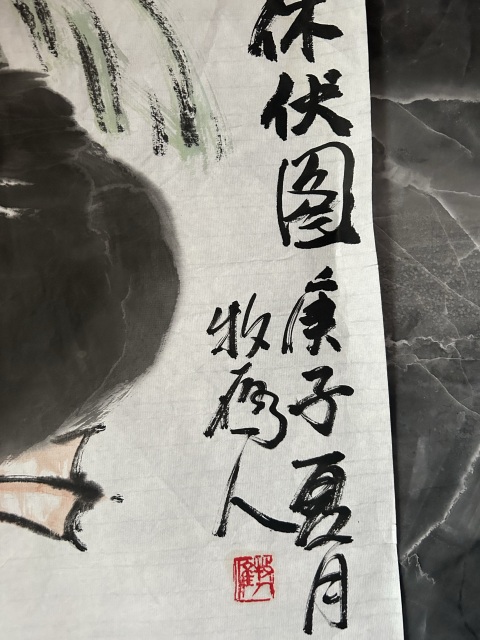 休伏图 庚子夏月
牧 人